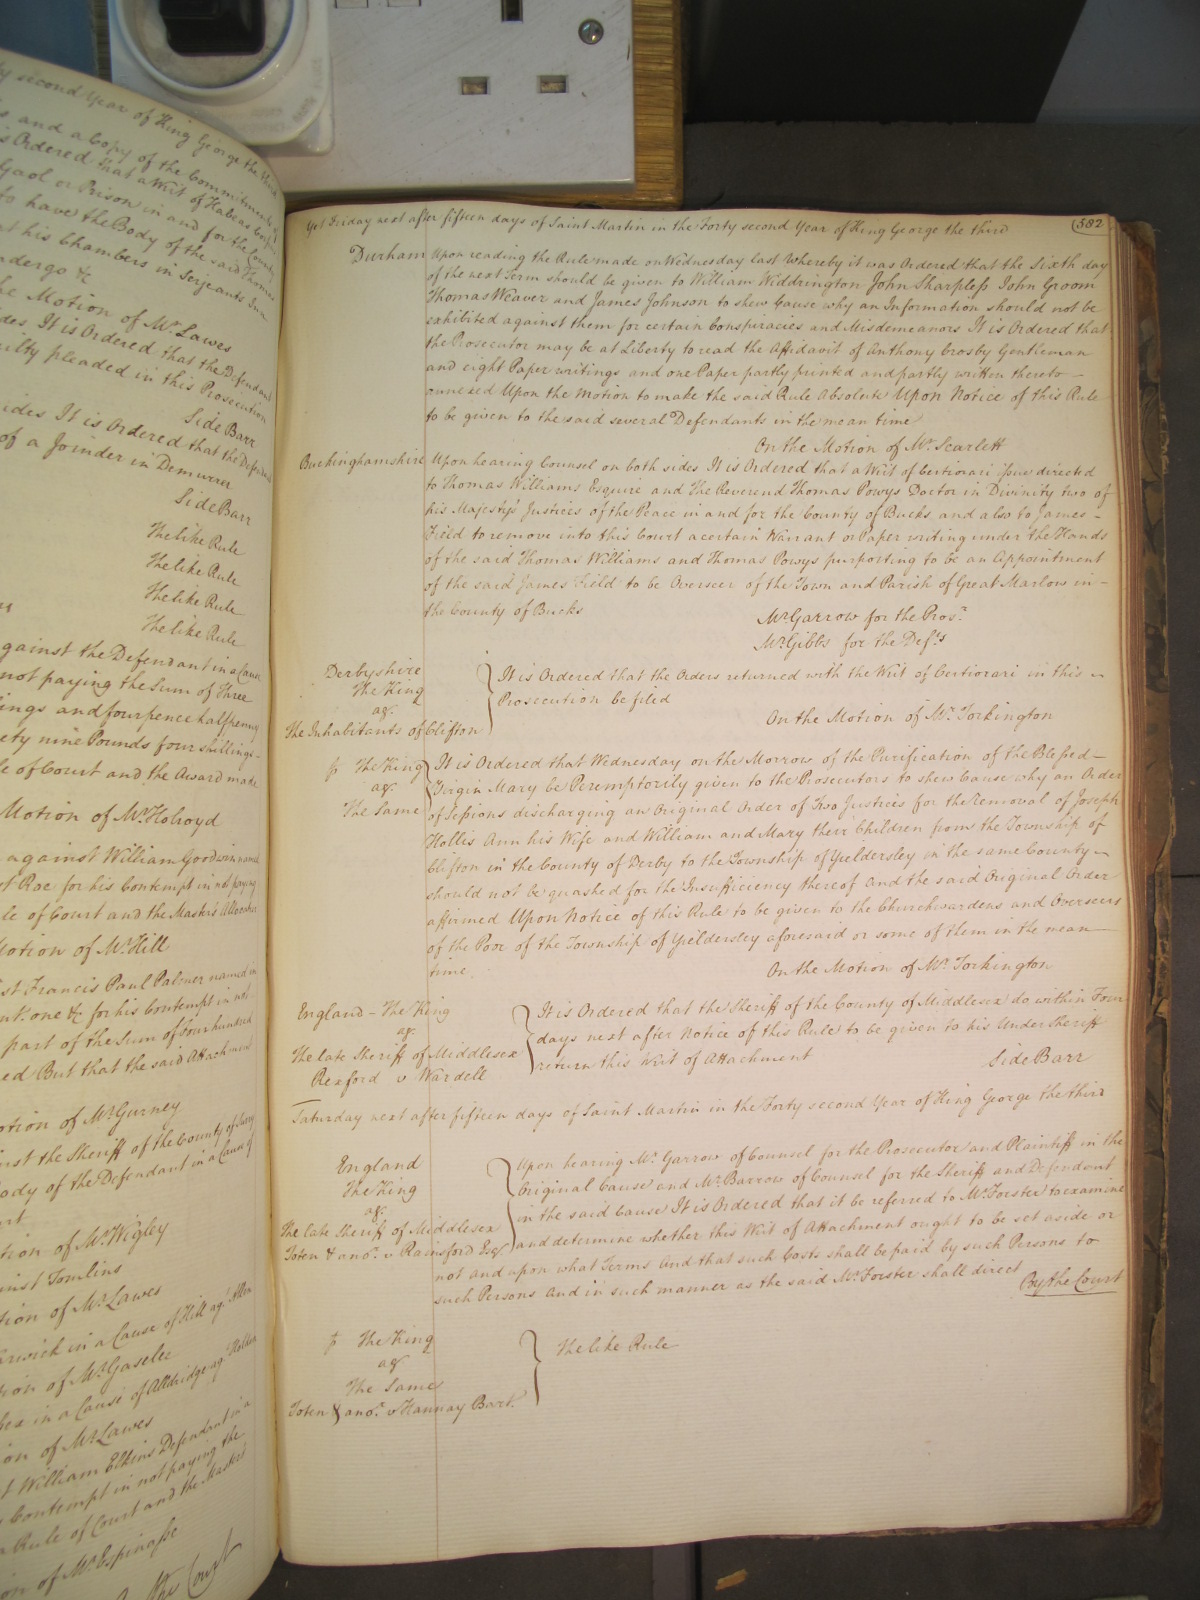 by second Year of King George the third
s and a Copy of the Commitment
is Ordered that a Writ of Habeas Corpus
Gaol or Prison in and for the County
to have the Body of the said Thomas
at his Chambers in Serjeants Inn
undergo &c
the Motion of Mr. Lawes
ides It is Ordered that the Defendant
uilty pleaded in this Prosecution
Side Barr
ides It is Ordered that the Defend
of a Joinder in Demurrer
Side Barr
The like Rule
The like Rule
The like Rule
The like Rule
against the Defendant in a Cause
not paying the Sum of Three
ings and fourpence halfpenny
ety nine Pounds four shillings
le of Court and the Award made
Motion of Mr. Holroyd
against William Goodwin named
st Rae for his Contempt in not paying
le of Court and the Masters Allocatur
Motion of Mr. Hill
st Francis Paul Palmer named in
one &c for his Contempt in not
part of the Sum of four hundred
ed But that the said Attachment
otion of Mr. Gurney
inst the Sheriff of the County of Surry
ody of the Defendant in a Cause of
tion of Mr. Wigley
inst Tomlins
tion of Mr. Lawes
arwick in a Cause of Hill agt. Allen
tion of Mr. Gaselee
sex in a Cause of Aldridge agt. Holden
ion of Mr. Lawes
t William Elkins Defendant in a
Contempt in not paying the
Rule of Court and the Masters
on of Mr. Espinasse
the Court
Yet Friday next after fifteen days of Saint Martin in the Forty second Year of King George the third
582
Durham Upon reading the Rule made on Wednesday last Whereby it was Ordered that the Sixth day
of the next Term should be given to William Widdrington John Sharpless John Groom
Thomas Weaver and James Johnson to shew Cause why an Information should not be
exhibited against them for certain Conspiracies and Misdemeanors It is Ordered that
the Prosecutor may be at Liberty to read the Affidavit of Anthony Crosby Gentleman
and eight Paper writings and one Paper partly printed and partly written thereto
annexed Upon the Motion to make the said Rule Absolute Upon Notice of this Rule
to be given to the said several Defendants in the mean time
On the Motion of Mr. Scarlett
Buckinghamshire Upon hearing Counsel on both sides It is Ordered that a Writ of Certiorari issue directed
to Thomas Williams Esquire and The Reverend Thomas Powys Doctor in Divinity two of
his Majesty's Justices of the Peace in and for the County of Bucks and also to James
Field to remove into this Court a certain Warrant or Paper writing under the Hands
of the said Thomas Williams and Thomas Powys purporting to be an Appointment
of the said James Field to be Overseer of the Town and Parish of Great Marlow in
the County of Bucks
Mr. Garrow for the Prosr.
Mr. Gibbs for the Defts.
Derbyshire
The King
agt.
The Inhabitants of Clifton
It is Ordered that the Orders returned with the Writ of Certiorari in this
Prosecution be filed
On the Motion of Mr. Torkington
The King
agt.
The Same
It is Ordered that Wednesday on the Morrow of the Purification of the Blessed
Virgin Mary be Peremptorily given to the Prosecutors to shew Cause why an Order
of Sessions discharging an Original Order of Two Justices for the Removal of Joseph
Hollis Ann his Wife and William and Mary their Children from the Township of
Clifton in the County of Derby to the Township of Yieldersley in the same County
should not be quashed for the Insufficiency thereof And the said Original Order
affirmed Upon Notice of this Rule to be given to the Churchwardens and Overseers
of the Poor of the Township of Yieldersley aforesaid or some of them in the mean
time
On the Motion of Mr. Torkington
England - The King
agt.
The late Sheriff of Middlesex
Rexford v Wardell
It is Ordered that the Sheriff of the County of Middlesex do within Four
days next after Notice of this Rule to be given to his Under Sheriff
return this Writ of Attachment
Side Barr
Saturday next after fifteen days of Saint Martin in the Forty second Year of King George the third
England
The King
agt.
The late Sheriff of Middlesex
Toten & anor. v Rainsford Esqr.
Upon hearing Mr. Garrow of Counsel for the Prosecutor and Plaintiff in the
Original Cause and Mr. Barrow of Counsel for the Sheriff and Defendant
in the said Cause It is Ordered that it be referred to Mr. Forster to examine
and determine whether this Writ of Attachment ought to be set aside or
not and upon what Terms And that such Costs shall be paid by such Persons to
such Persons And in such manner as the said Mr. Forster shall direct
By the Court
The King
agt.
The Same
Toten & anor. v Hannay Bart.
The like Rule